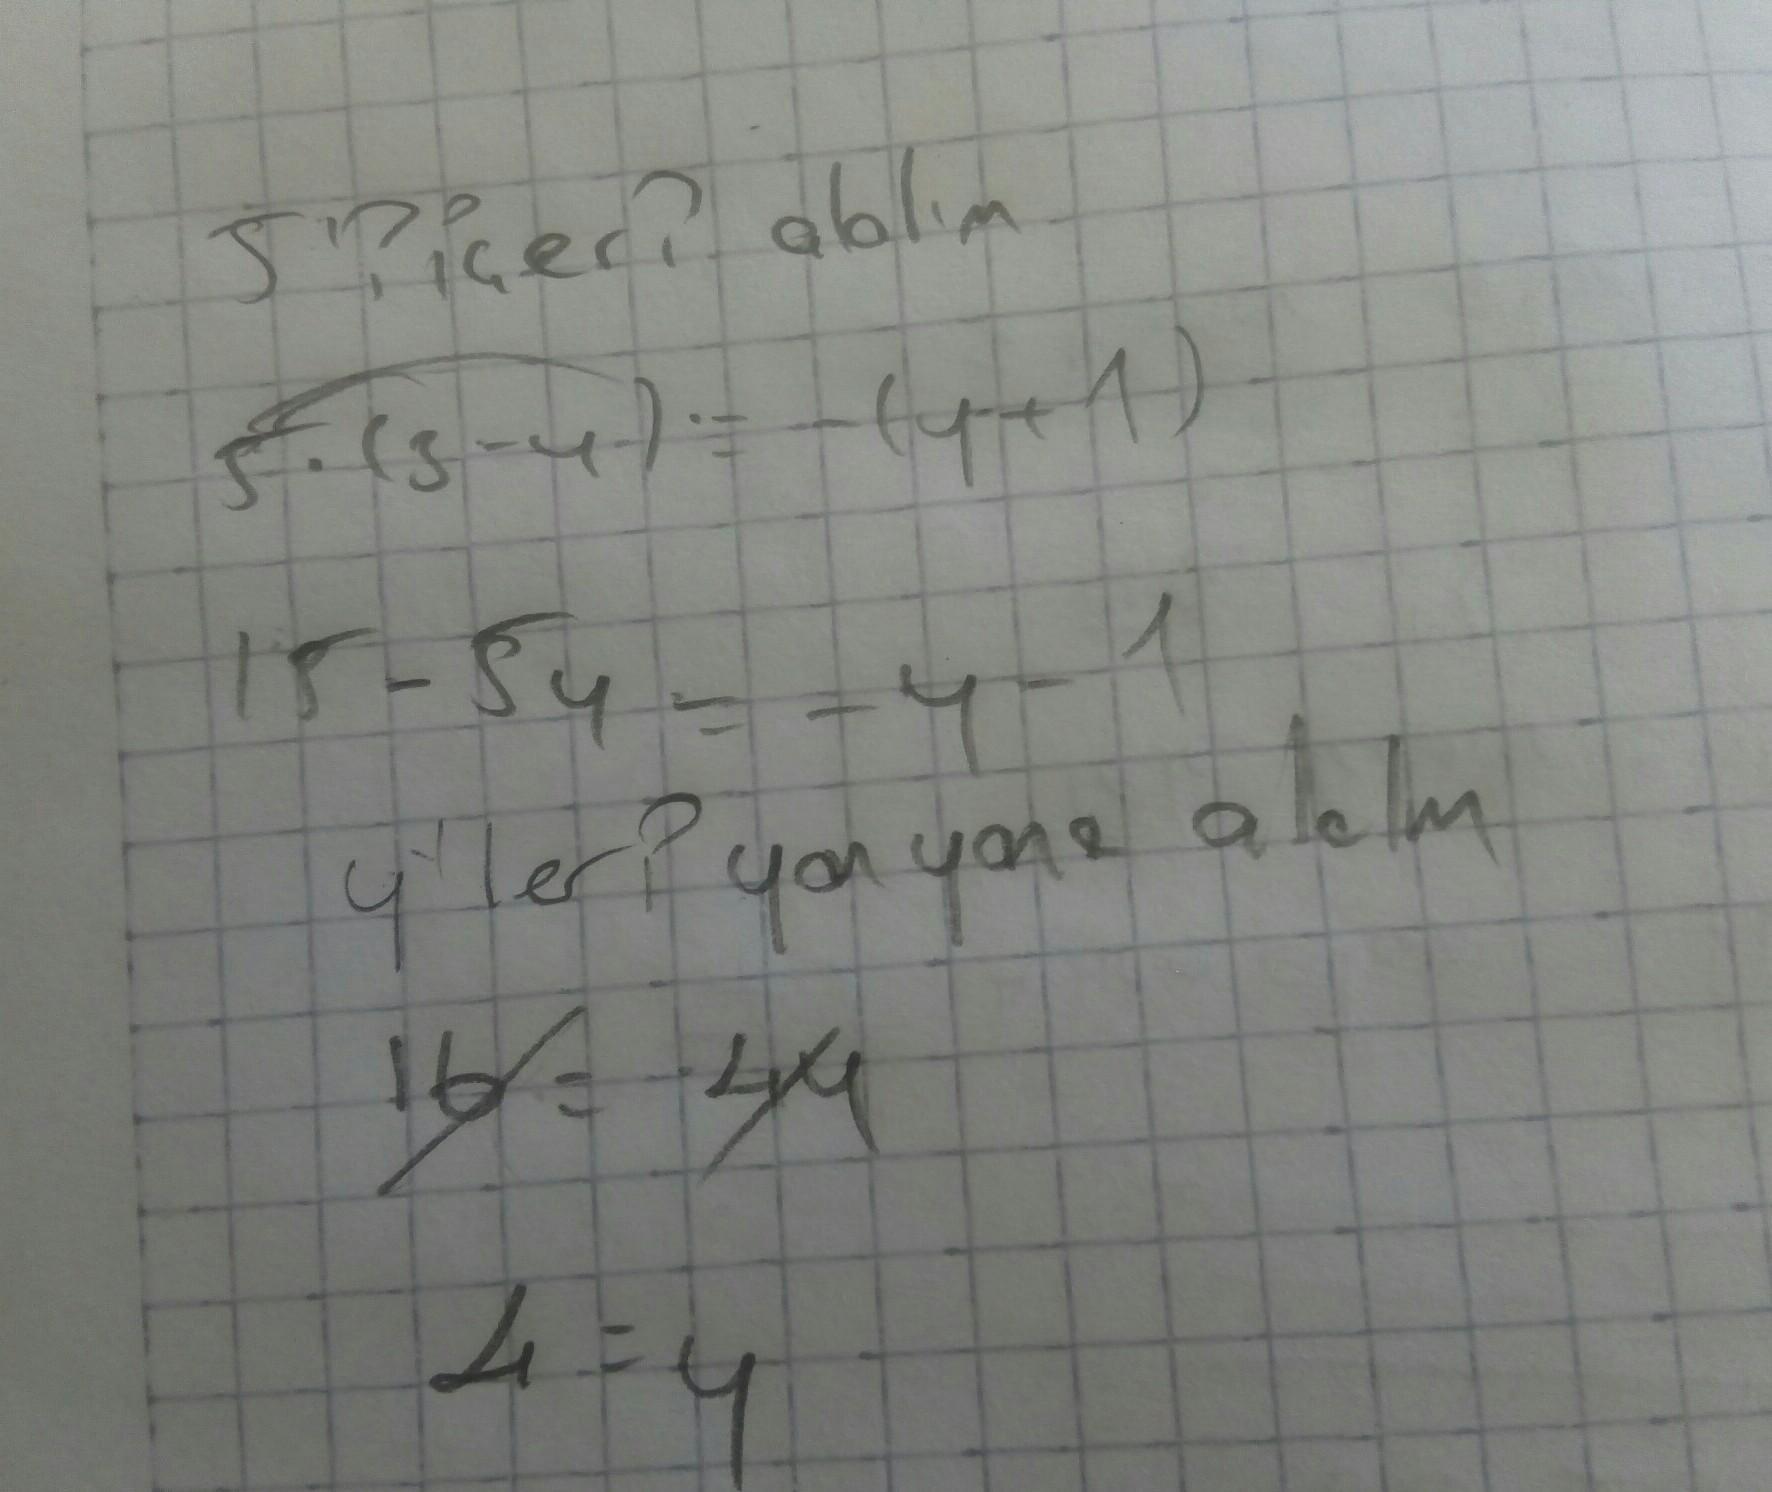 5'i içeri alalım
5.(3-y) = -(y+1)
15-5y = -y-1
y'leri yan yana alalım
16 = 4y
4 = y